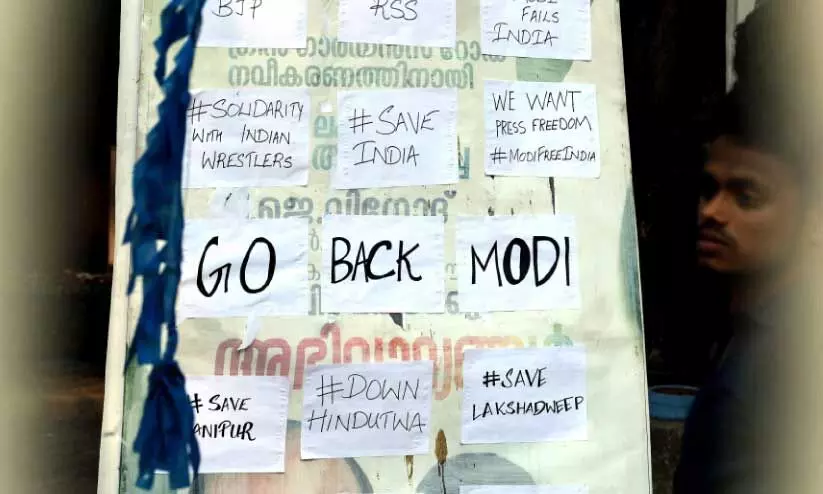 BJP
RSS
FAILS
INDIA
നവീകരണത്തിനായി
#SOLIDARITY
WITH INDIAN
WRESTLERS
#SAVE
INDIA
WE WANT
PRESS FREEDOM
#MODIFREEINDIA
ജെ.വിനോദ്
GO
BACK
MODI
അഭിവാദ്യങ്ങൾ
# SAVE
ANIPUR
#DOWN
HINDUTWA
#SAVE
LAKSHADWEEP